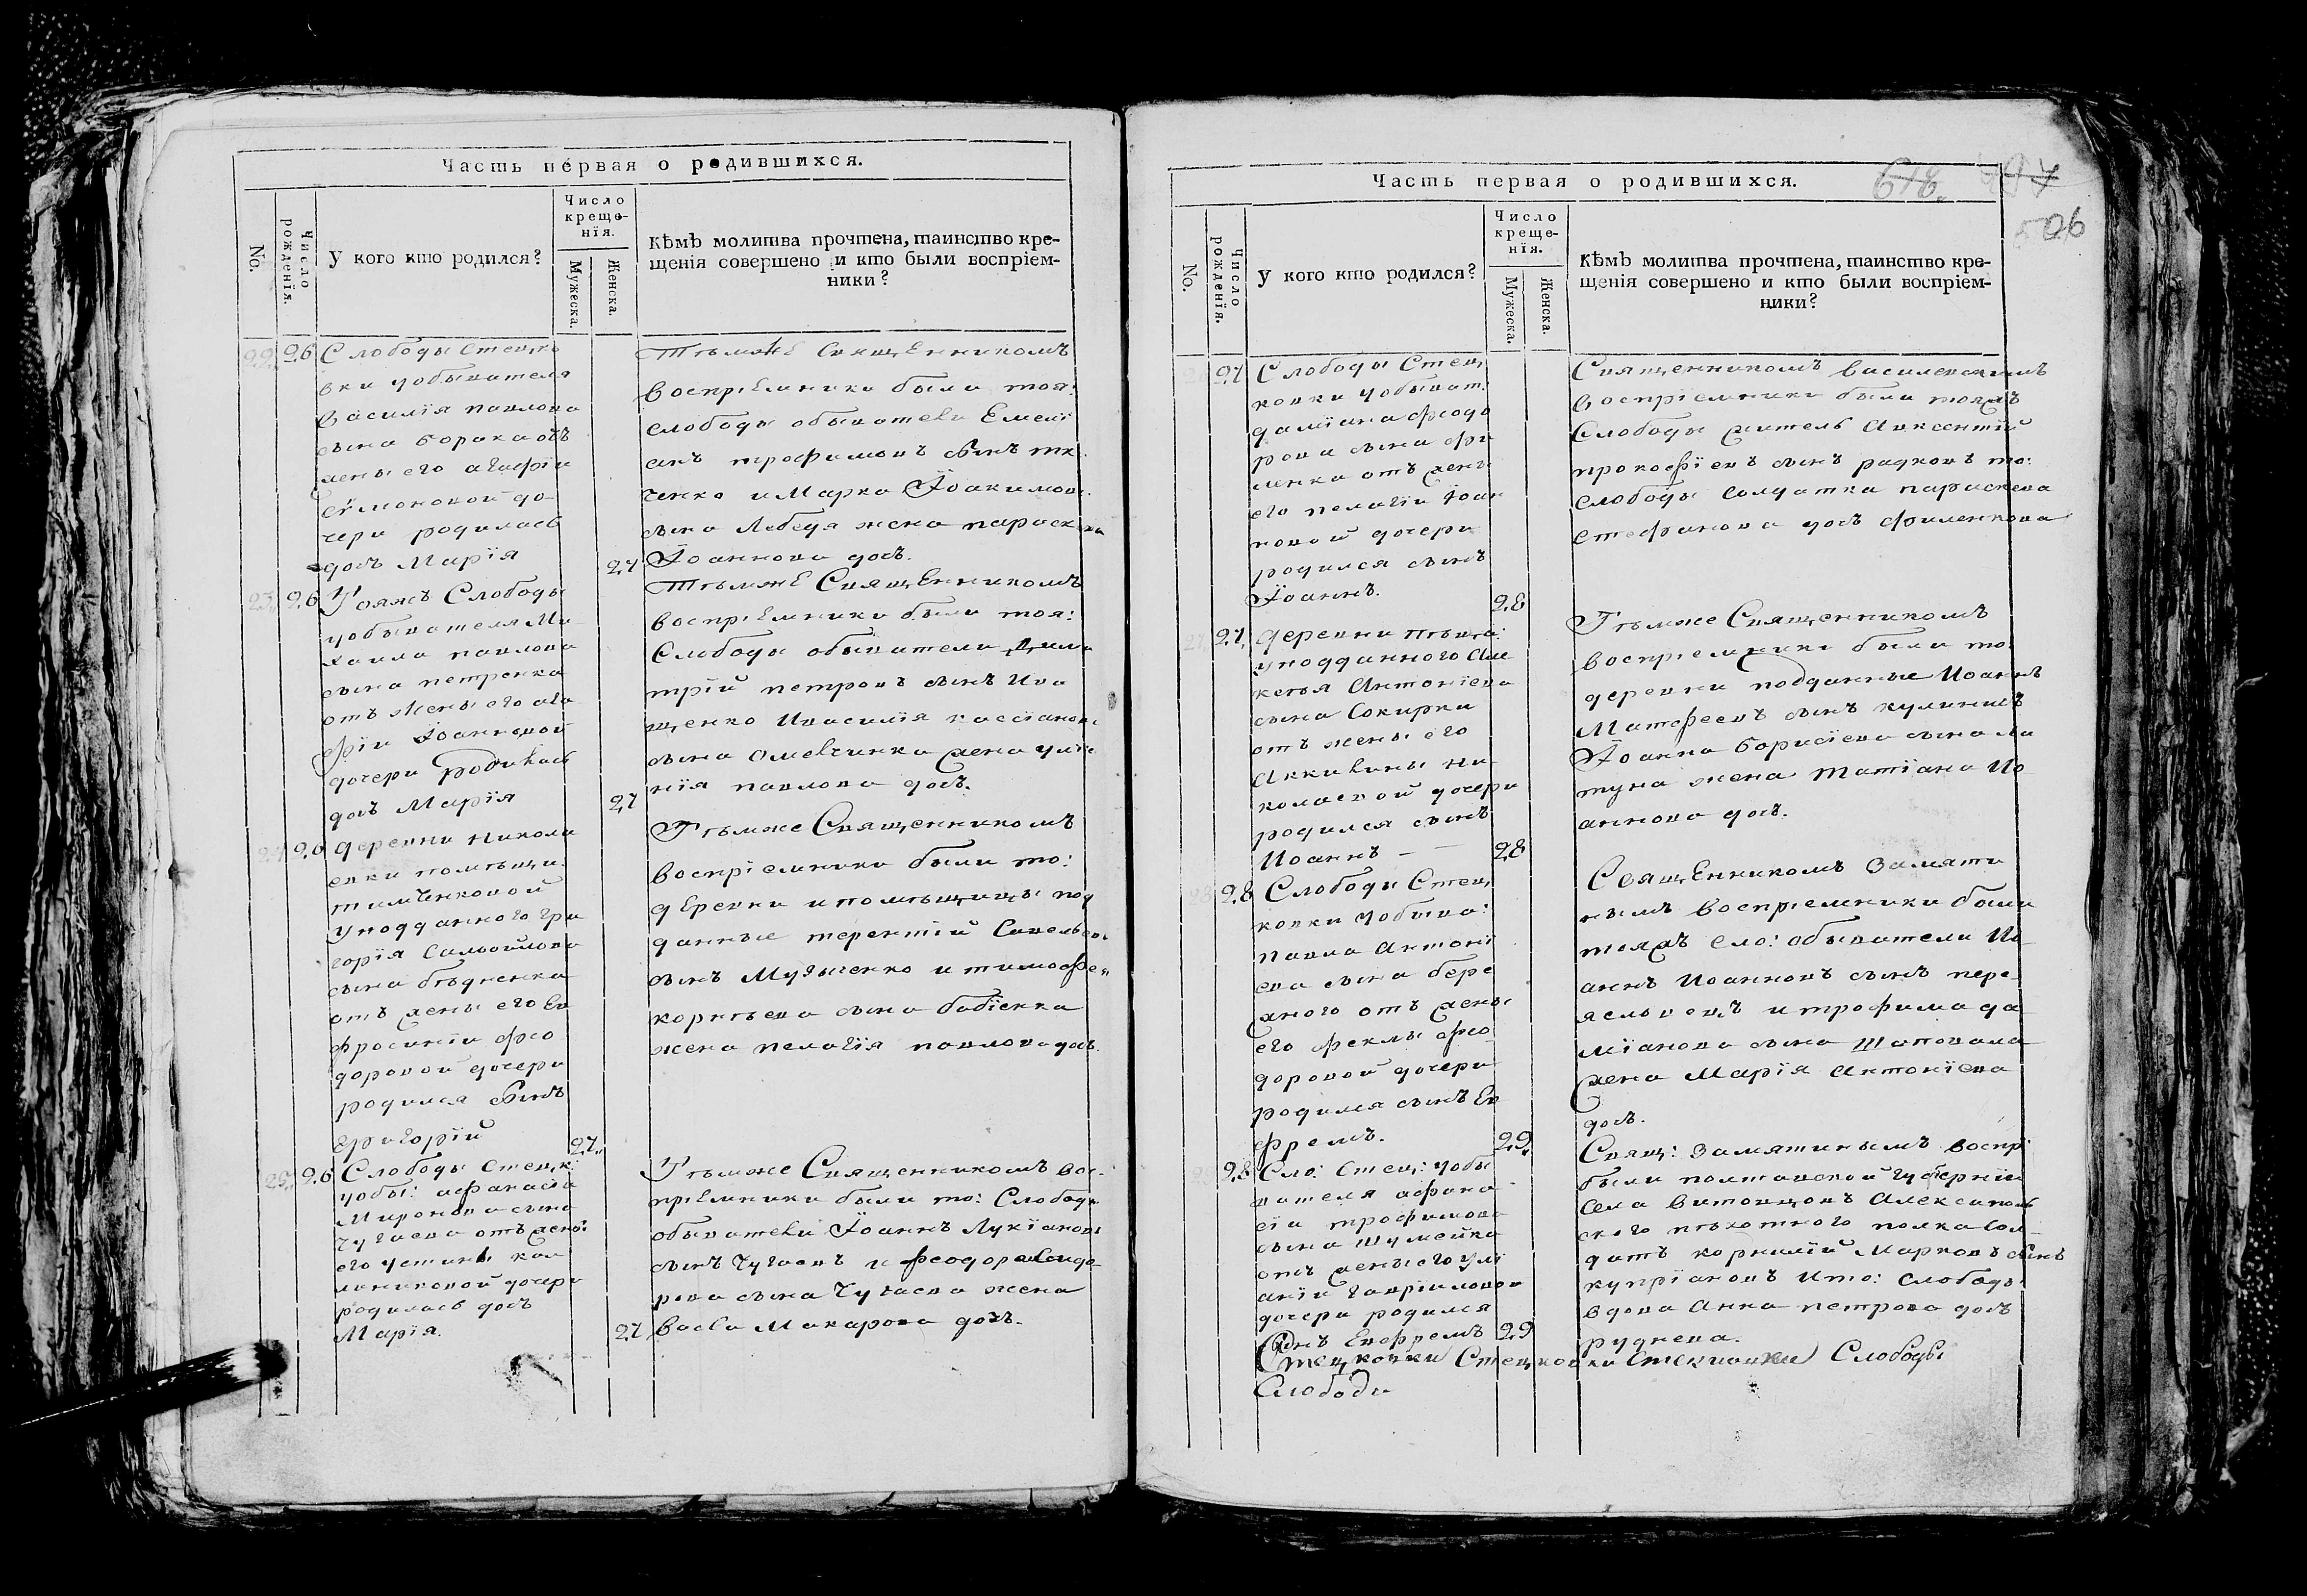 Часть первая о родившихся.
No.
Число рожденія.
У кого кто родился?
Число креще-
нїя.
Мужеска.
Женска.
Кѣмъ молитва прочтена, таинство кре-
щенія совершено и кто были воспріем-
ники?
22 26 Слободы Стецко
вки уобывателя
Василїя павлова
сына борока отъ
жены его агафїи
сѵмоновой до-
чери родилась
дочь Марїя 27
Тѣмже Священникомъ
воспріемники были тоя:
слободы обыватели Емелї
анъ трофимовъ сынъ тк
ченко и Марка Іоакимова
сына Лебедя жена параскева
Іоаннова дочь.
23 26 Тояжъ Слободы
уобывателя Ми-
хаила павлова
сына петренка
отъ жены его ага
фїи Іоанновой
дочери родилась
дочь Марїя 27
Тѣмже Священникомъ
воспріемники были тоя:
Слободы обыватели Дими
трїй петровъ сынъ Ива
щенко Ивасилїя кассїанова
сына омельчинка жена улїя
нїя павлова дочь.
24 26 деревни никола
евки помѣщи
тимченковой
уподданного гри
горїя Самойлова
сына бѣдненка
отъ жены его Ев
фросинїи фео
доровой дочери
родился сынъ
григорїй 27.
Тѣмже Священникомъ
воспріемники были то:
деревни ипомѣщицы под
данные терентїй Савельевъ
сынъ Мудыченко и тимофея
корнѣева сына бабїенка
жена пелагїя павлова дочь.
25 26 Слободы Стецкі
уобы: афанасїя
Миронова сына
Чугаева отъ жены
его устины кал
линиковой дочери
родилась дочь
Марїя. 27
Тѣмже Священникомъ вос-
пріемники были то: Слободы
обыватели Іоаннъ Лукїановъ
сынъ Чугаевъ и феодора Сидо-
рова сына Чугаева жена
васса Макарова дочь.
Часть первая о родившихся.
618.
506
No.
Число рожденія.
У кого кто родился?
Число креще-
нїя.
Мужеска.
Женска.
Кѣмъ молитва прочтена, таинство кре-
щенія совершено и кто были воспріем-
ники?
26 27 Слободы Стец
ковки уобыват:
дамїана феодо
рова сына фи
ленка отъ жены
его пелагїи Іоан
новой дочери
родился сынъ
Іоаннъ. 28
Священникомъ василевскимъ
воспріемники были тояжъ
Слободы житель Авксентїй
прокофїевъ сынъ радковъ то:
слободы солдатка параскева
стефанова дочь филенкова
27 27 деревни
уподданного Але
ксѣя Антонїева
сына Сокирки
отъ жены его
Аккилины ни-
колаевой дочери
родился сынъ
Иоаннъ 28
Тѣмже Священникомъ
воспріемники были то:
деревни подданные Иоаннъ
Матфеевъ сынъ кулиничъ
Іоанна борисїева сына ла
туна жена татїана Ио-
аннова дочь.
28 28 Слободы Стец
ковки уобыва:
павла Антонї
ева сына бере
жного отъ жены
его феклы фео
доровой дочери
родился сынъ Ев
фремъ. 29
Священникомъ Замяти
нымъ воспріемники были
тояжъ сло: обыватели Ио-
аннъ Иоанновъ сынъ пере-
яславецъ и трофима да
мїанова сына шаповала
жена Марїя Антонїева
дочь.
28 Сло: Стец: уобы
вателя афана
сїя трофимова
сына шумейка
отъ жены его улї
анїи гаврїиловой
дочери родился
Сынъ Евфремъ 29
Свящ: Замятинымъ воспрі
были полтавской губернїи
села витовцовъ Алексаполь
ского пѣхотного полка сол-
датъ корнилїй Марковъ сынъ
купрїановъ Ито: слободы
вдова Анна петрова дочь
руднева.
Стецковки Стецковки Стецковки Слободы
Слободы